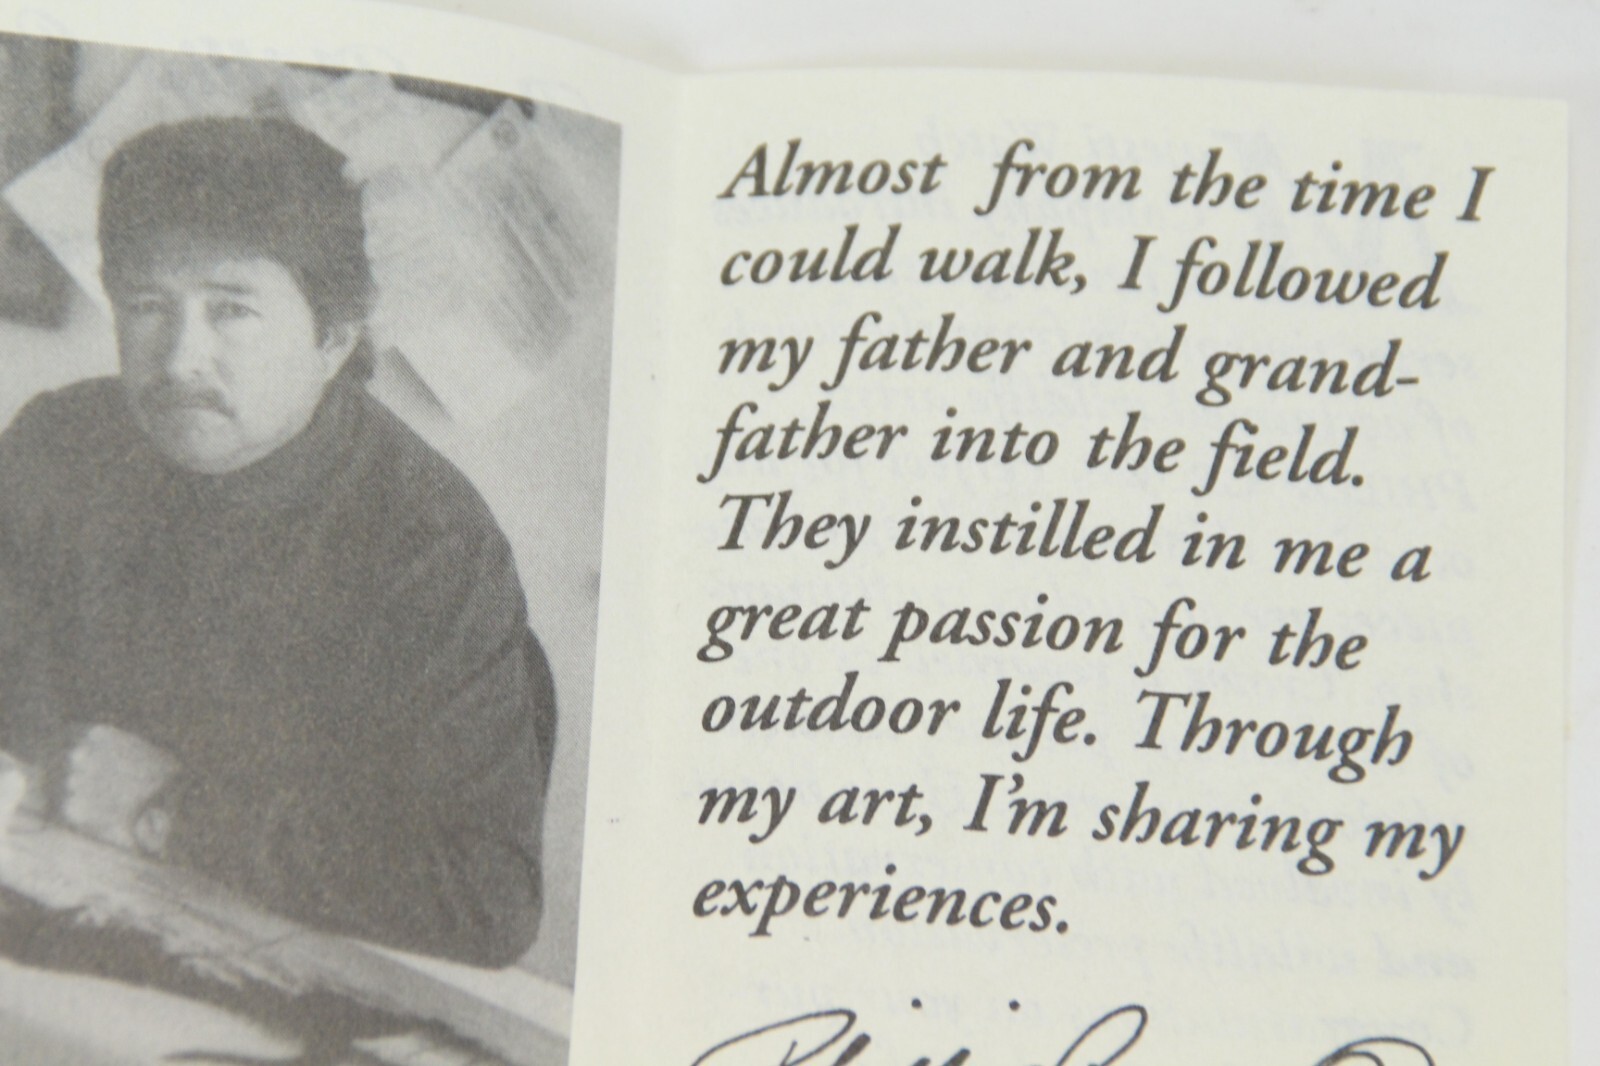 Almost from the time I
could walk, I followed
my father and grand-
father into the field.
They instilled in me a
great passion for the
outdoor life. Through
my art, I'm sharing my
experiences.